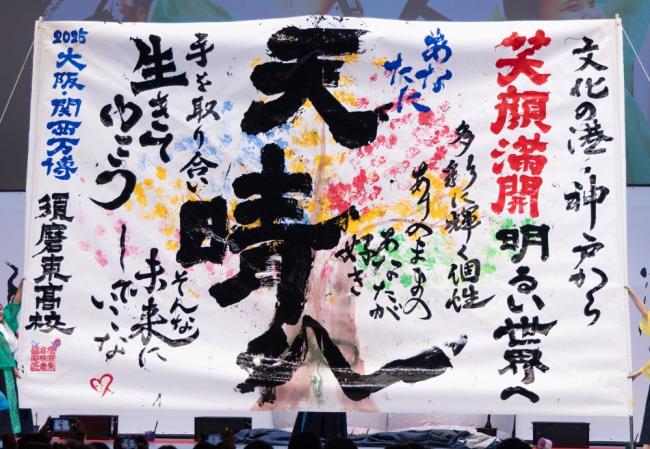 文化の港・神戸から
笑顔満開
明るい世界へ
多彩に輝く個性
あな
たに
ありのままの
あなたが
好き
天時人
手を取り合い
生きて
ゆこう
そんな
未来に
していこな
2025大阪・関西万博
須磨東高校